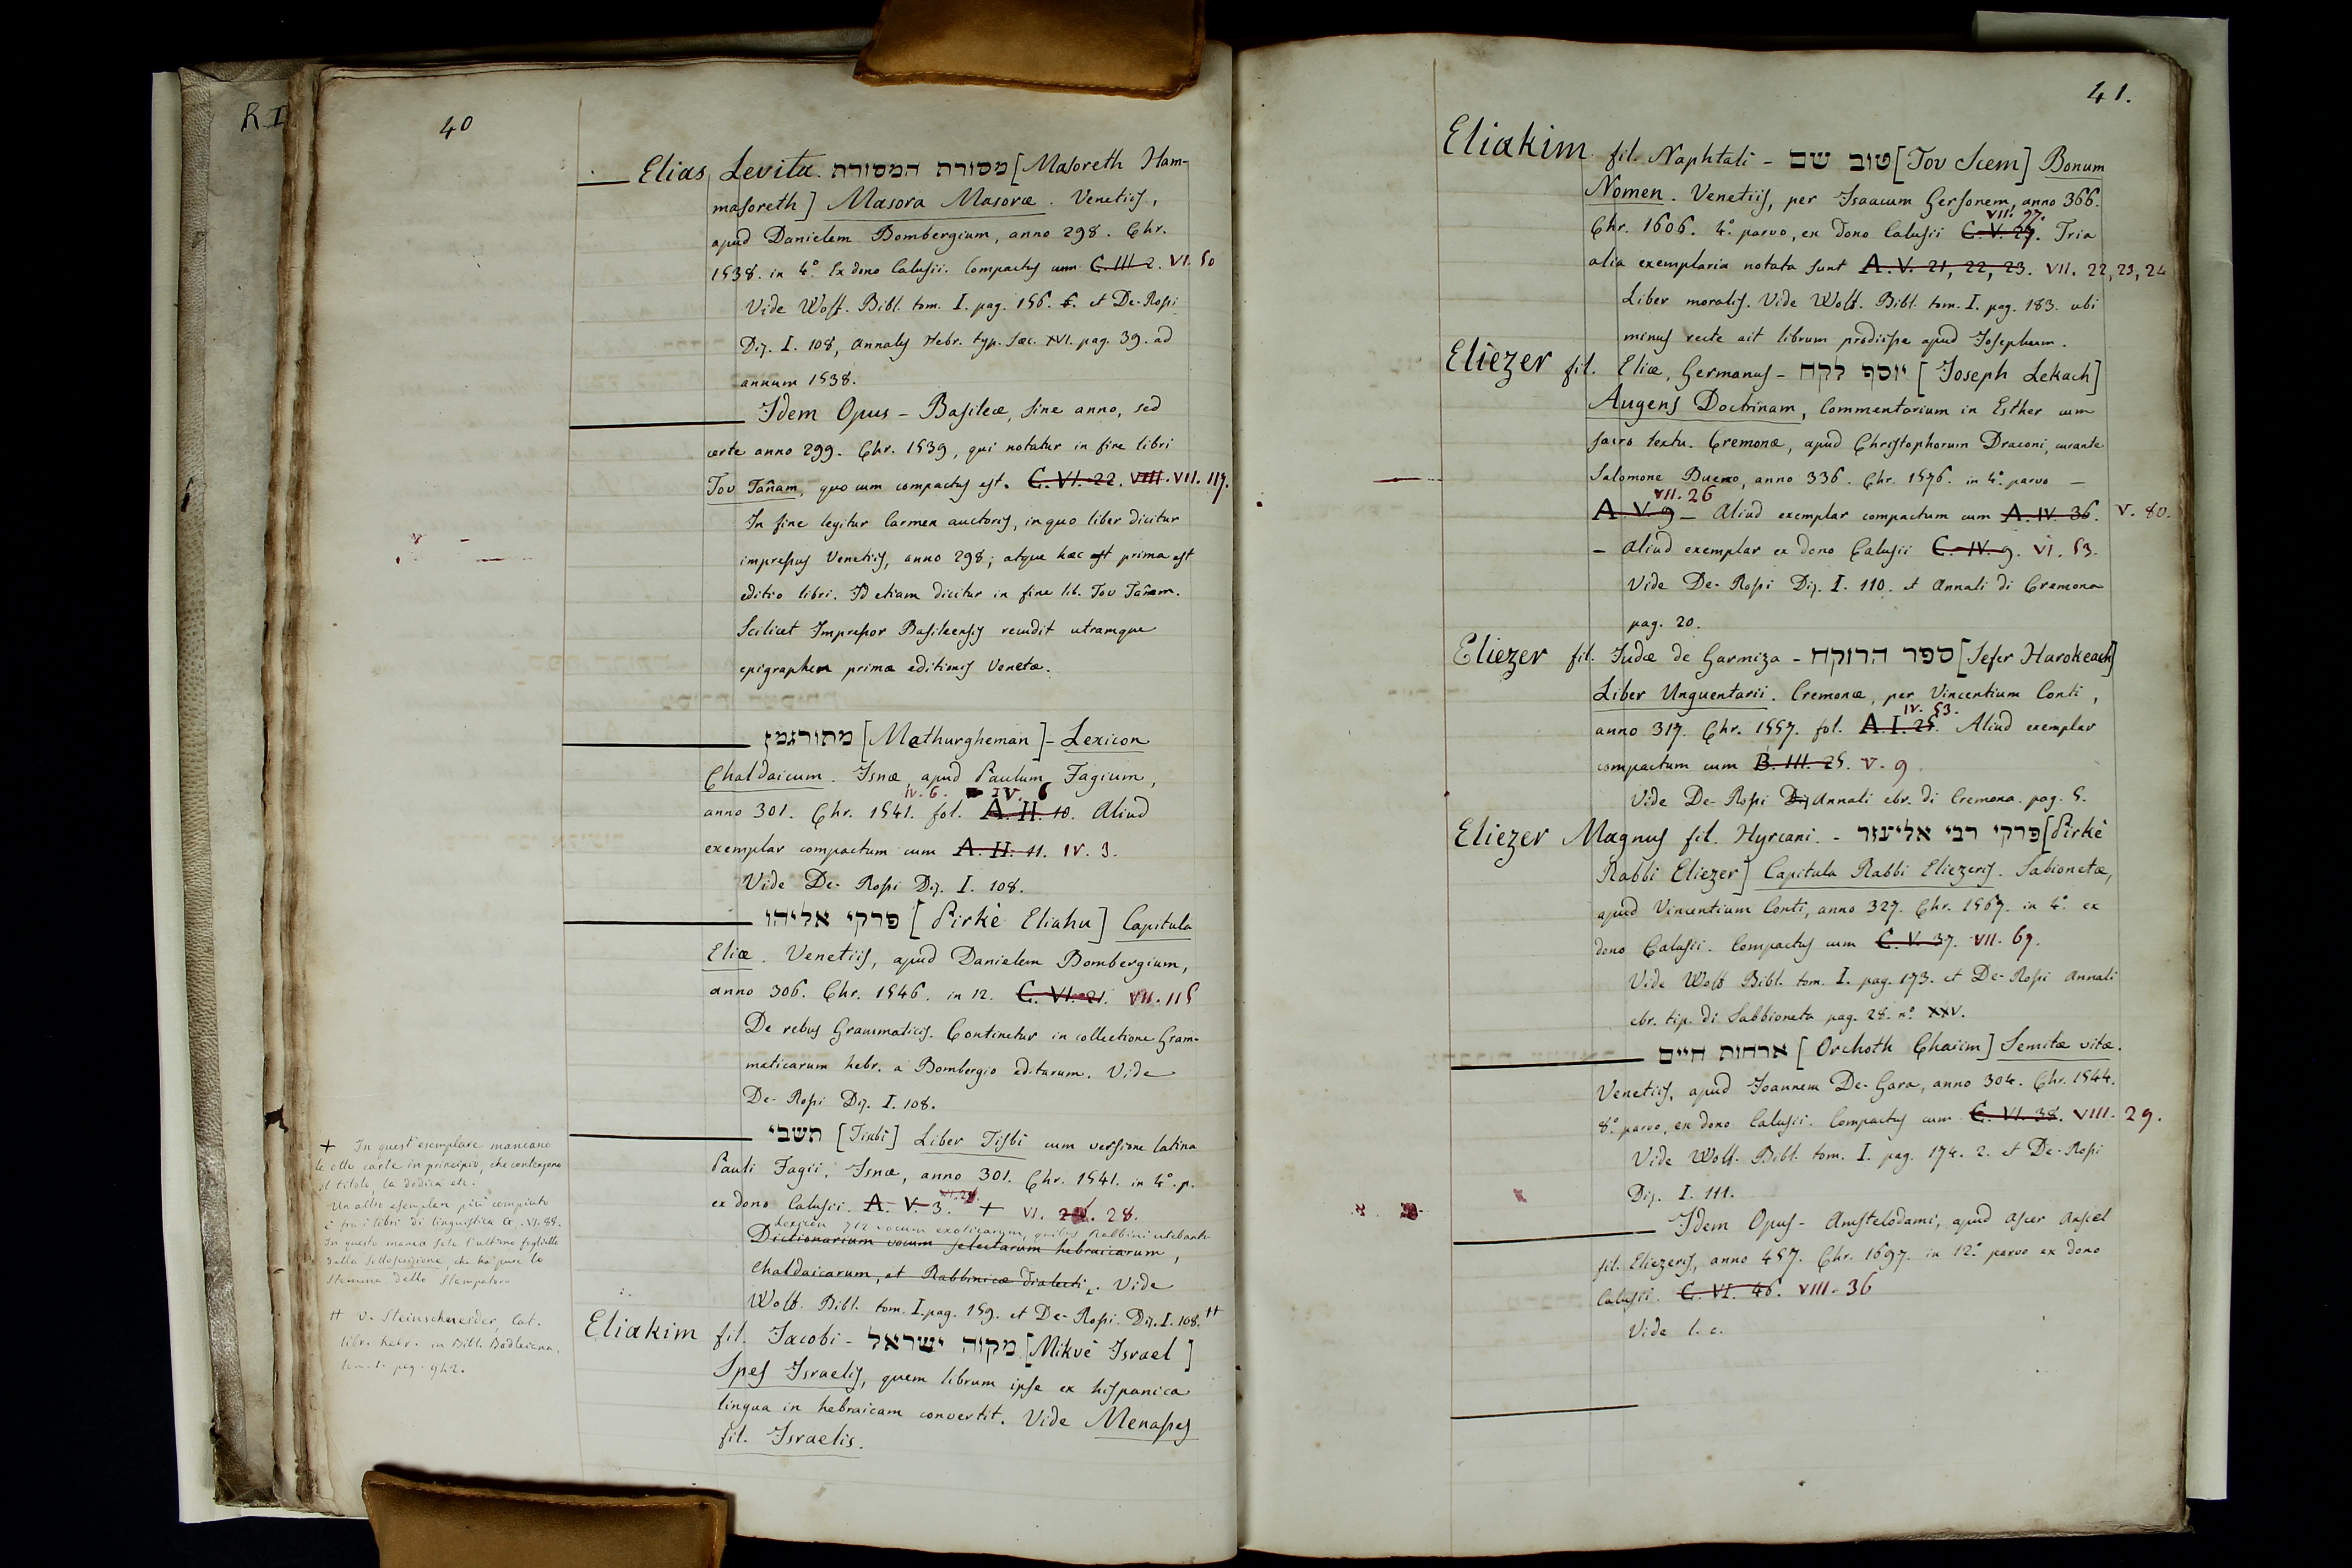 40
Elias Levita. מסורת המסורת [Masoreth Ham-
masoreth] Masora Masoræ. Venetiis,
apud Danielem Bombergium, anno 298. Chr.
1538. in 4.° Ex dono Calusii. Compactus cum C. III 2. VI. 50
Vide Wolf. Bibl. tom. I. pag. 156. 6. et De-Rossi
Diz. I. 108, Annales Hebr. typ. sæc. XVI. pag. 39. ad
annum 1538.
Idem Opus - Basileæ, sine anno, sed
certe anno 299. Chr. 1539, qui notatur in fine libri
Tov Tañam, quo cum compactus est. C. VI. 22. VIII. VII. 117.
In fine legitur Carmen auctoris, in quo liber dicitur
impressus Venetiis, anno 298; atque hæc est prima est
editio libri. Id etiam dicitur in fine lib. Tov Tañam.
Scilicet Impressor Basileensis recudit utramque
epigraphen primæ editionis Venetæ.
מתורגמן [Methurgheman] - Lexicon
Chaldaicum. Isnæ, apud Paulum Fagium,
IV. 6. IV. 6
anno 301. Chr. 1541. fol. A. II. 10. Aliud
exemplar compactum cum A. II. 11. IV. 3.
Vide De-Rossi Diz. I. 108.
פרקי אליהו [Pirkè Eliahu] Capitula
Eliæ. Venetiis, apud Danielem Bombergium,
anno 306. Chr. 1546. in 12. C. VI. 21. VII. 115
De rebus Grammaticis. Continetur in collectione Gram-
maticarum hebr. a Bombergio editarum. Vide
De-Rossi Diz. I. 108.
תשבי [Tisbi] Liber Tisbi cum versione latina
Pauli Fagii. Isnæ, anno 301. Chr. 1541. in 4.° p.
ex dono Calusii. A. V. 3. + VI. 28.
Lexicon 712 vocum exoticarum, quibus Rabbini utebantur
Dictionarium vocum selectarum hebraicarum,
Chaldaicarum, et Rabbinicæ dialecti. Vide
Wolf. Bibl. tom. I. pag. 159. et De-Rossi. Diz. I. 108. ++
Eliakim fil. Jacobi - מקוה ישראל [Mikvè Israel]
Spes Israelis, quem librum ipse ex hispanica
lingua in hebraicam convertit. Vide Menasses
fil. Israelis.
+ In quest'esemplare mancano
le otto carte in principio, che contengono
il titolo, la dedica etc.
Un altro esemplare più compiuto
è fra i libri di linguistica G. VI. 88.
In questo manca solo l'ultimo foglietto
della sottoscrizione, che ha pure lo
stemma dello stampatore
++ v. Steinschneider, Cat.
libr. hebr. in Bibl. Bodleiana,
tom. I. pag. 942.
41.
Eliakim fil. Naphtali - טוב שם [Tov Scem] Bonum
Nomen. Venetiis, per Isaacum Gersonem, anno 366.
VII. 77.
Chr. 1606. 4.° parvo, ex dono Calusii C. V. 27. Tria
alia exemplaria notata sunt A. V. 21, 22, 23. VII. 22, 23, 24
Liber moralis. Vide Wolf. Bibl. tom. I. pag. 183. ubi
minus recte ait librum prodiisse apud Josephum.
Eliezer fil. Eliæ, Germanus - יוסף לקח [Joseph Lekach]
Augens Doctrinam, Commentarium in Esther cum
sacro textu. Cremonæ, apud Christophorum Draconi, curante
Salomone Bueno, anno 336. Chr. 1576. in 4.° parvo -
VII. 26
A. V. 9 - Aliud exemplar compactum cum A. IV. 36. V. 80.
- Aliud exemplar ex dono Calusii C. IV. 9. VI. 53.
Vide De-Rossi Diz. I. 110. et Annali di Cremona
pag. 20.
Eliezer fil. Judæ de Garmiza - ספר הרוקח [Sefer Harokeach]
Liber Unguentarii. Cremonæ, per Vincentium Conti,
IV. 53.
anno 317. Chr. 1557. fol. A. I. 25. Aliud exemplar
compactum cum B. III. 25. V. 9.
Vide De-Rossi Diz Annali ebr. di Cremona. pag. 5.
Eliezer Magnus fil. Hyrcani. - פרקי רבי אליעזר [Pirkè
Rabbi Eliezer] Capitula Rabbi Eliezeris. Sabionetæ,
apud Vincentium Conti, anno 327. Chr. 1567. in 4.° ex
dono Calusii. Compactus cum C. V. 37. VII. 67.
Vide Wolf Bibl. tom. I. pag. 173. et De-Rossi Annali
ebr. tip. di Sabbioneta pag. 28. n.° XXV.
ארחות חיים [Orchoth Chaiim] Semitæ vitæ.
Venetiis, apud Joannem De-Gara, anno 304. Chr. 1544.
8.° parvo, ex dono Calusii. Compactus cum C. VI. 38. VIII. 29.
Vide Wolf. Bibl. tom. I. pag. 174. 2. et De-Rossi
Diz. I. 111.
Idem Opus - Amstelodami, apud Ascer Ansel
fil. Eliezeris, anno 457. Chr. 1697. in 12.° parvo ex dono
Calusii. C. VI. 46. VIII. 36
Vide l. c.